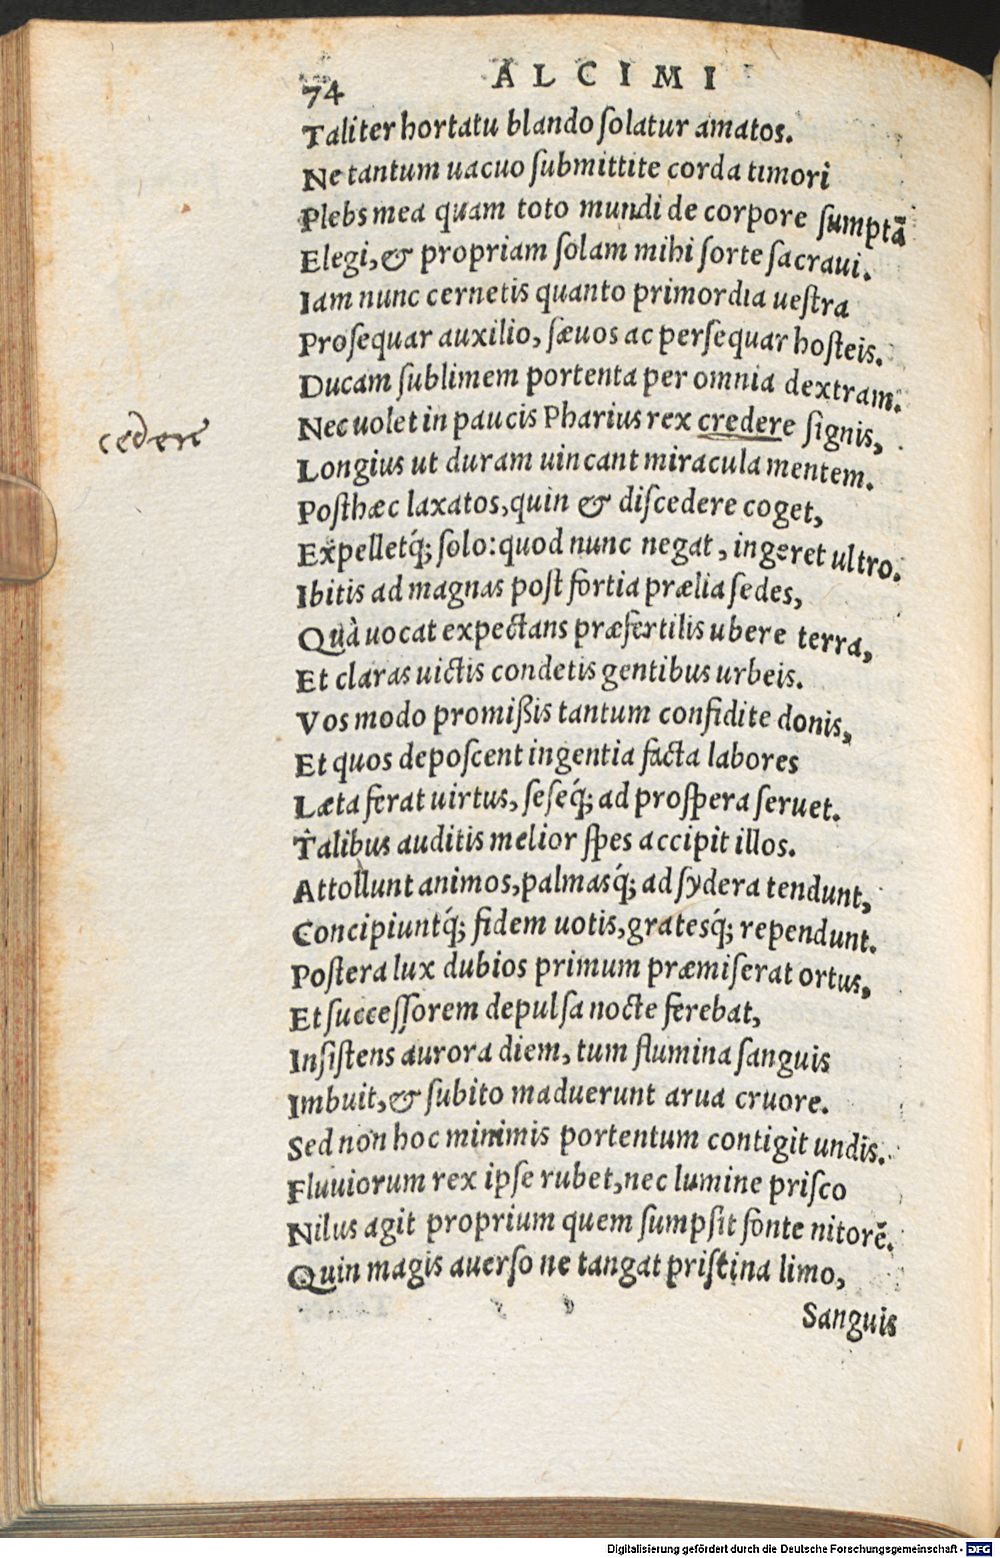 74 ALCIMI
Taliter hortatu blando ſolatur amatos.
Ne tantum uacuo ſubmittite corda timori
Plebs mea quam toto mundi de corpore ſumptā
Elegi, & propriam ſolam mihi ſorte ſacraui.
Iam nunc cernetis quanto primordia ueſtra
Proſequar auxilio, ſæuos ac perſequar hoſteis.
Ducam ſublimem portenta per omnia dextram.
Nec uolet in paucis Pharius rex credere ſignis,
cedere
Longius ut duram uincant miracula mentem.
Poſthæc laxatos, quin & diſcedere coget,
Expelletq́; ſolo: quod nunc negat, ingeret ultro.
Ibitis ad magnas poſt fortia prælia ſedes,
Quà uocat expectans præfertilis ubere terra,
Et claras uictis condetis gentibus urbeis.
Vos modo promiſsis tantum confidite donis,
Et quos depoſcent ingentia facta labores
Læta ferat uirtus, ſeſeq́; ad proſpera ſeruet.
Talibus auditis melior ſpes accipit illos.
Attollunt animos, palmasq́; ad ſydera tendunt,
Concipiuntq́; fidem uotis, gratesq́; rependunt.
Poſtera lux dubios primum præmiſerat ortus,
Et ſucceſſorem depulſa nocte ferebat,
Inſiſtens aurora diem, tum flumina ſanguis
Imbuit, & ſubito maduerunt arua cruore.
Sed non hoc minimis portentum contigit undis.
Fluuiorum rex ipſe rubet, nec lumine priſco
Nilus agit proprium quem ſumpſit fonte nitorē.
Quin magis auerſo ne tangat priſtina limo,
Sanguis
Digitalisierung gefördert durch die Deutsche Forschungsgemeinschaft - DFG